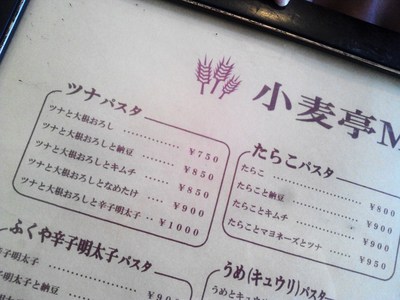 小麦亭M
ツナパスタ
ツナと大根おろし ............ ¥750
ツナと大根おろしと納豆 ......... ¥850
ツナと大根おろしとキムチ ...... ¥850
ツナと大根おろしとなめたけ ... ¥900
ツナと大根おろしと辛子明太子 .. ¥1000
たらこパスタ
たらこ ............ ¥800
たらこと納豆 ............ ¥900
たらことキムチ ............ ¥900
たらことマヨネーズとツナ ...... ¥950
ふくや辛子明太子パスタ
辛子明太子
明太子と納豆
うめ(キュウリ)パスタ